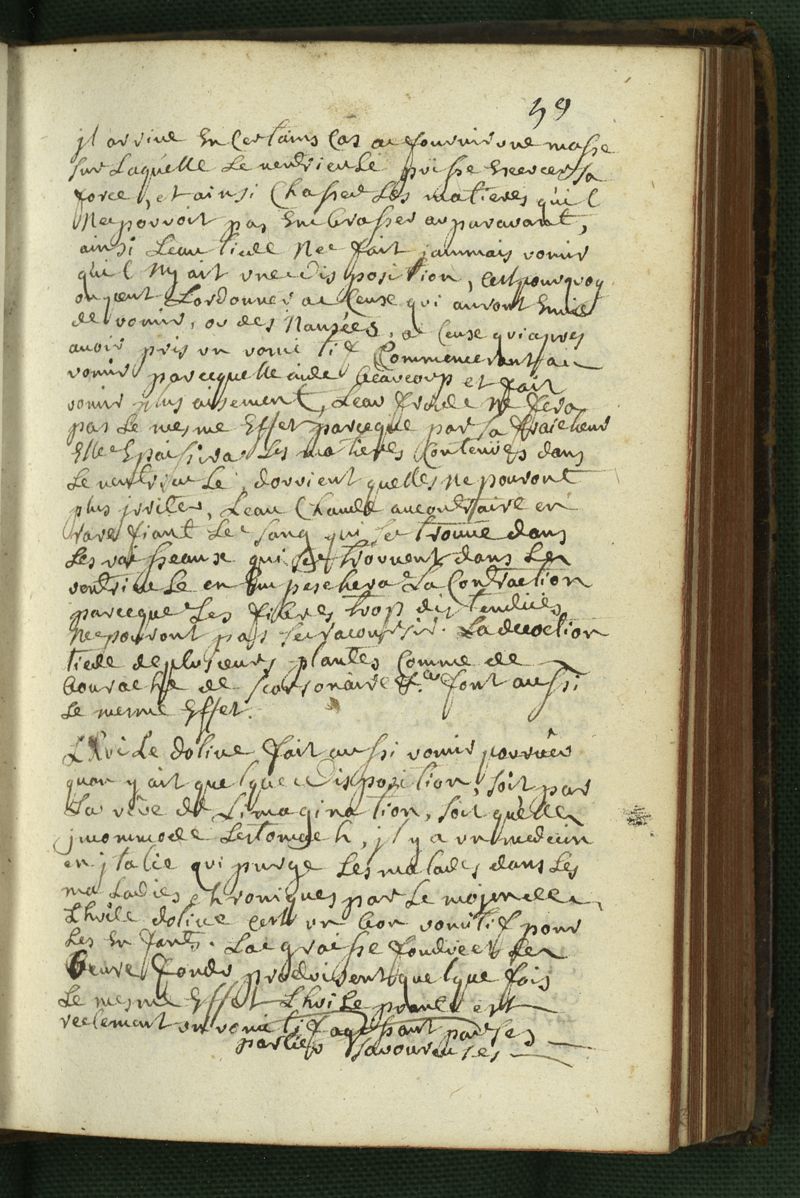 59
jl arrive en certains cas de fournir une masse
sur laquelle le ventricule puisse exercer sa
force, et ainsi chasser les matieres qu'il
ne pouvoit pas embrasser auparavant,
ainsi l'eau tiede ne fait jammais vomir
qu'il ny ait une disposition, cest pourquoy
on peut l'ordonner a ceux qui auront envie
de vomir, ou des nausées, a ceux qui apres
avoir pris un vomitif commenceront a
vomir parcequelle aide beaucoup et fait
vomir plus aisement, l'eau froide ne fera
pas le mesme effet parceque par sa fraicheur
elle epaissira les matieres contenües dans
le ventricule, dou vient quelles ne pouront
plus jrriter, l'eau chaude au contraire en
rarefiant le sang qui se trouve dans
les vaisseaux qui se trouvent dans le
ventricule en empeschera la contraction
parceque les fibres trop distendües
ne pouront pas se racoursir. La decoction
tiede de plusieurs plantes comme de
bourache de scorsonaire &c. font aussi
le mesme effet.
L'huile dolive fait aussi vomir pourveu
quon y ait quelque disposition, soit par
la de l'imagination, soit qu'elle
jncommode lestomach, jl y a un medecin
en jtalie qui purge les malades dans les
maladies chroniques par le moien
Lhuile dolive cest un bon vomitif pour
les enfants. La graisse fondüe et le
beure fondu produisent quelque fois
le mesme effet Lhuile est
reelement un vomitif agissant par ses
parties savoureuses